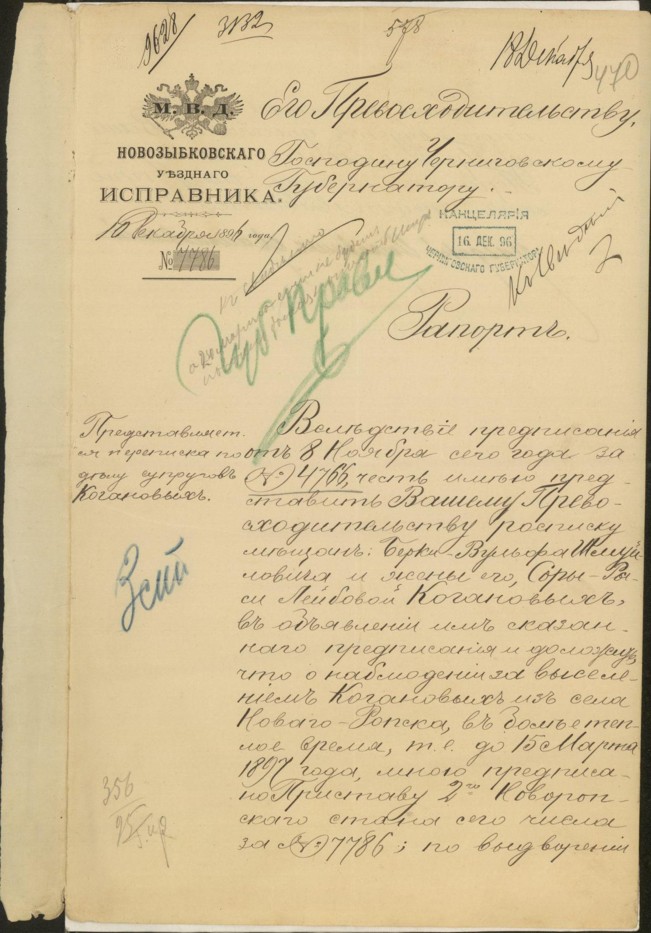 9628
3132
578
18 Декабря
470
М. В. Д.
НОВОЗЫБКОВСКАГО
УѢЗДНАГО
ИСПРАВНИКА.
10 Декабря 1896 года
№ 7786
Его Превосходительству,
Господину Черниговскому
Губернатору.
КАНЦЕЛЯРІЯ
16 ДЕК. 96
ЧЕРНИГОВСКАГО ГУБЕРНАТОРА
Рапортъ.
Губ Правл
Представляет-
ся переписка по
дѣлу супруговъ
Когановыхъ.
Вслѣдствіе предписанія
отъ 8 Ноября сего года за
№ 4766, честь имѣю пред-
ставить Вашему Прево-
сходительству росписку
мѣщанъ: Берки-Вульфа Шмуй-
ловича и жены его, Соры-Ра-
си Лейбовой Когановыхъ,
въ объявленіи имъ сказан-
наго предписанія и доложить,
что о наблюденіи за выселе-
ніемъ Когановыхъ изъ села
Новаго-Ропска, въ болѣе теп-
лое время, т. е. до 15 Марта
1897 года, мною предписа-
но Приставу 2го Новороп-
скаго стана сего числа
за № 7786; по выдвореніи
356